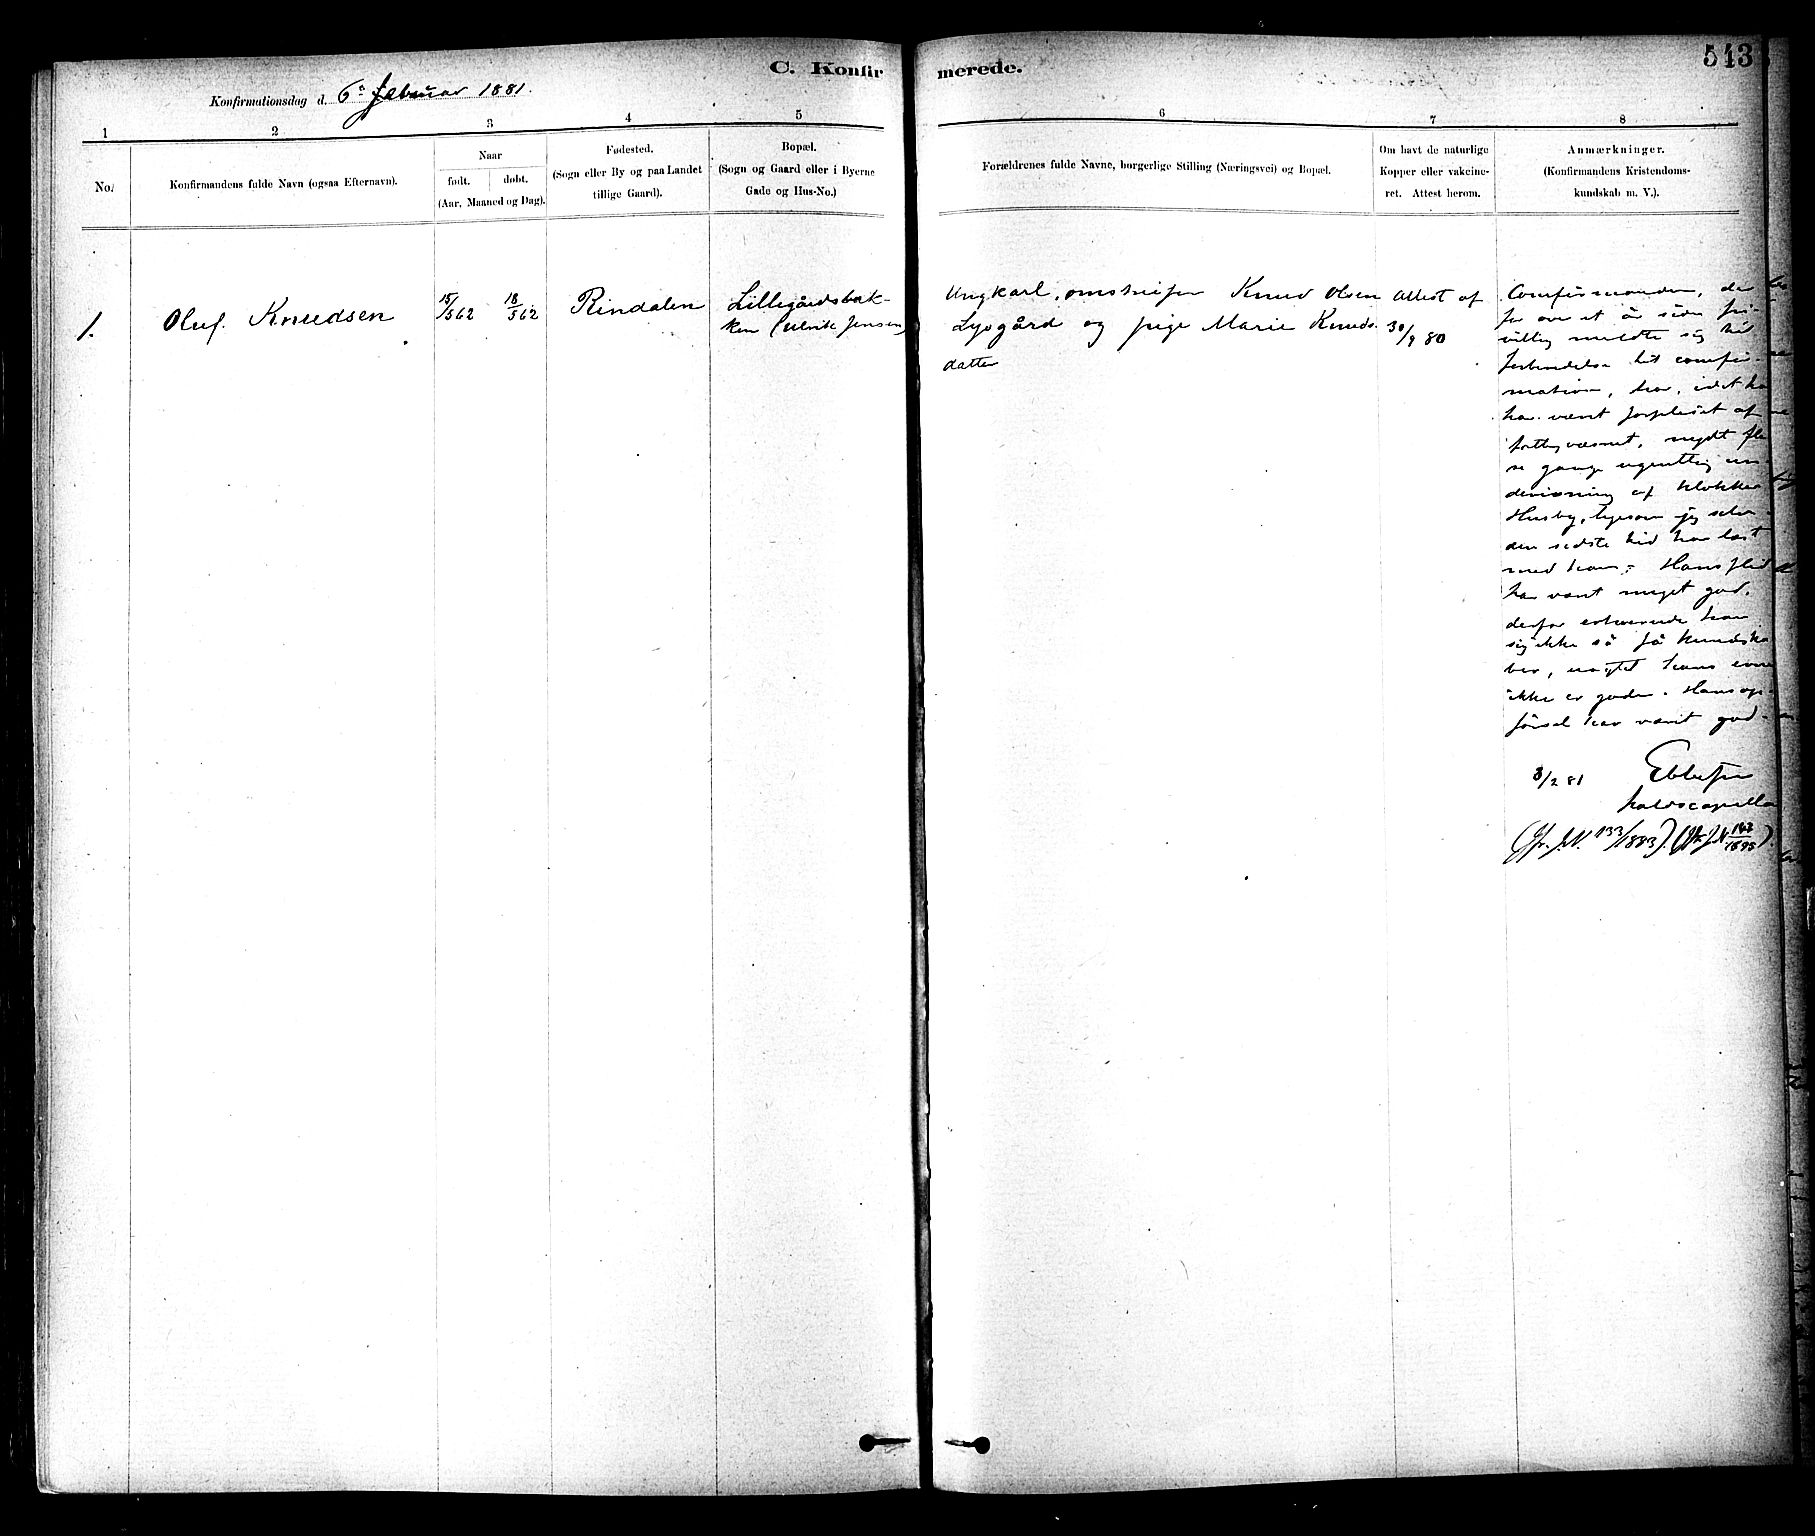 C. Konfirmerede.
543
Konfirmationsdag d. 6te februar 1881.
1 2 3 4 5 6 7 8
No.
Konfirmandens fulde Navn (ogsaa Efternavn).
Naar
født. døbt.
(Aar, Maaned og Dag).
Fødested.
(Sogn eller By og paa Landet
tillige Gaard).
Bopæl.
(Sogn og Gaard eller i Byerne
Gade og Hus-No.)
Forældrenes fulde Navne, borgerlige Stilling (Næringsvei) og Bopæl.
Om havt de naturlige
Kopper eller vakcine-
ret. Attest herom.
Anmærkninger.
(Konfirmandens Kristendoms-
kundskab m. V.).
1.
Oluf Knudsen
15/5 62
18/5 62
Rindalen
Lillegårdsbak-
ken (Ulrik Jensen)
Ungkarl, omstreifer Knud Olsen
Lysgård og pige Marie Knuds-
datter
Attest af
30/9 80
Confirmanden, der
for over et år siden fri-
villig meldte sig til
forberedelse til confir-
mation, har, idet han
har været forpleiet af
fattigvæsnet, nydt fle-
re gange ugentlig un-
dervisning af klokker
Husby, ligesom jeg selv
den sidste tid har læst
med ham. Hans flid
har været meget god,
derfor erhvervede han
sig ikke så få kundska-
ber, uagtet hans evner
ikke er gode. Hans op-
førsel har været god.
3/2 81
(Jfr. J.N. 133/1883). (Jfr. J.N.